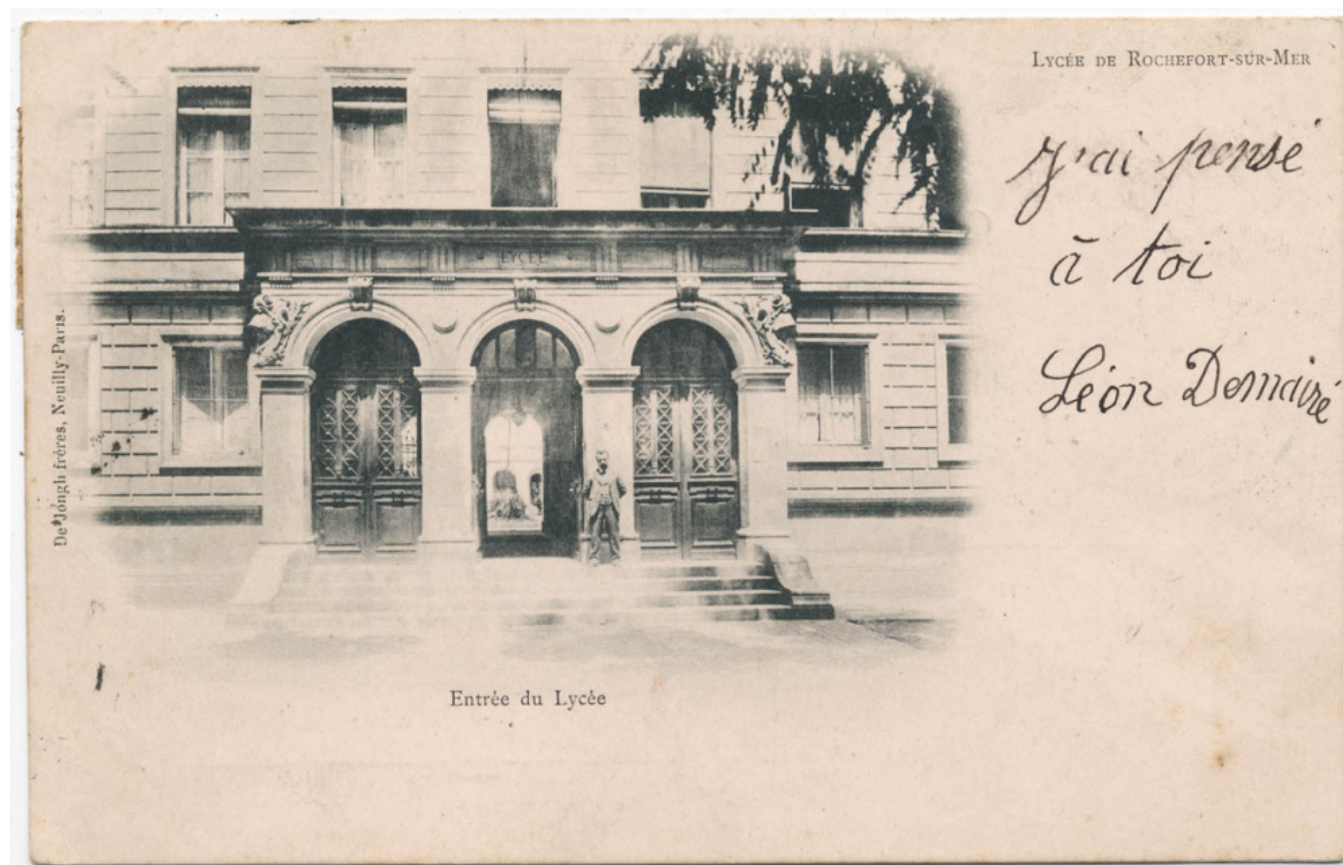 LYCÉE DE ROCHEFORT-SUR-MER
J'ai pensé
à toi
Léon Demaire
LYCÉE
De Jongh frères, Neuilly-Paris.
Entrée du Lycée